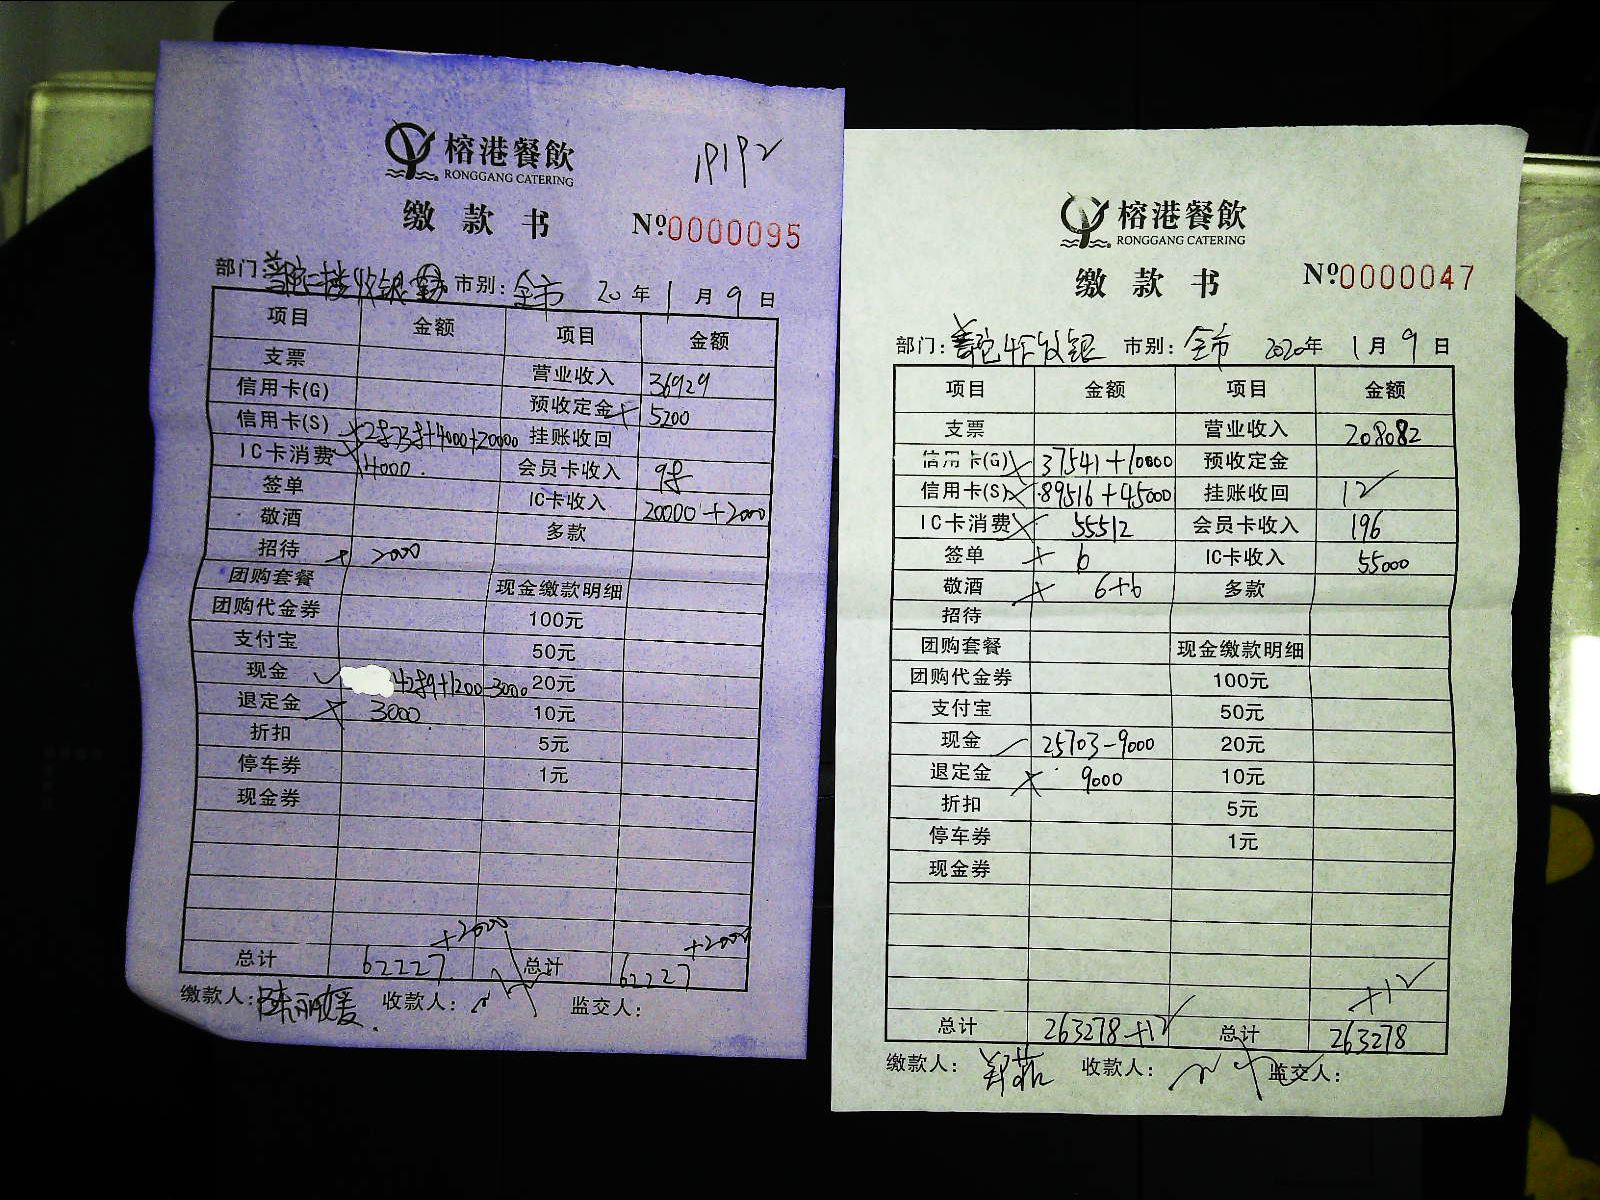 榕港餐飲
RONGGANG CATERING
19192
缴款书 Nº0000095
部门: 二楼收银 市别: 全市 20年1月9日
项目 金额 项目 金额
支票 营业收入 36929
信用卡(G) 预收定金 5200
信用卡(S) 28738+4000+20000 挂账收回
IC卡消费 4000 会员卡收入 98
签单 IC卡收入 20000+2000
敬酒 多款
招待 2000
团购套餐 现金缴款明细
团购代金券 100元
支付宝 50元
现金 4289+1200-3000 20元
退定金 3000 10元
折扣 5元
停车券 1元
现金券
+2000 +2000
总计 62227 总计 62227
缴款人: 陈丽媛 收款人: 监交人:
榕港餐飲
RONGGANG CATERING
缴款书 Nº0000047
部门: 收银 市别: 全市 2020年1月9日
项目 金额 项目 金额
支票 营业收入 208082
信用卡(G) 37541+10000 预收定金
信用卡(S) 89516+45000 挂账收回 12
IC卡消费 55512 会员卡收入 196
签单 6 IC卡收入 55000
敬酒 6+6 多款
招待
团购套餐 现金缴款明细
团购代金券 100元
支付宝 50元
现金 25703-9000 20元
退定金 9000 10元
折扣 5元
停车券 1元
现金券
+12
总计 263278+12 总计 263278
缴款人: 郑菲 收款人: 监交人: